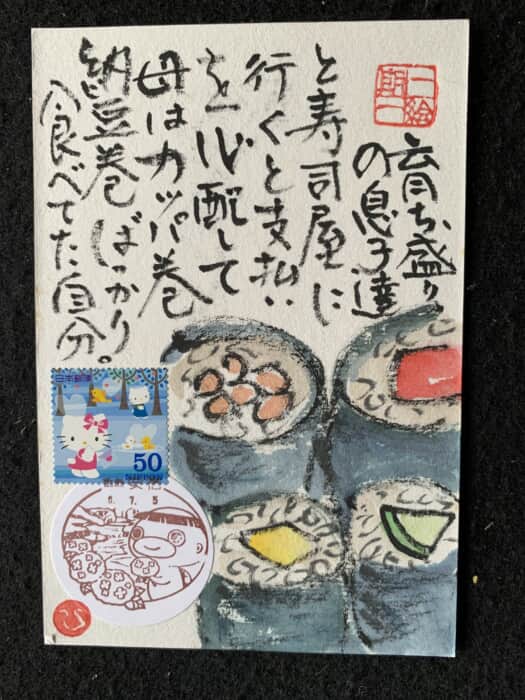 育ち盛り
の息子達
と寿司屋に
行くと支払い
を心配して
母はカッパ巻
納豆巻ばっかり
食べてた自分。
日本郵便
50
NIPPON
6.7.5
ひ